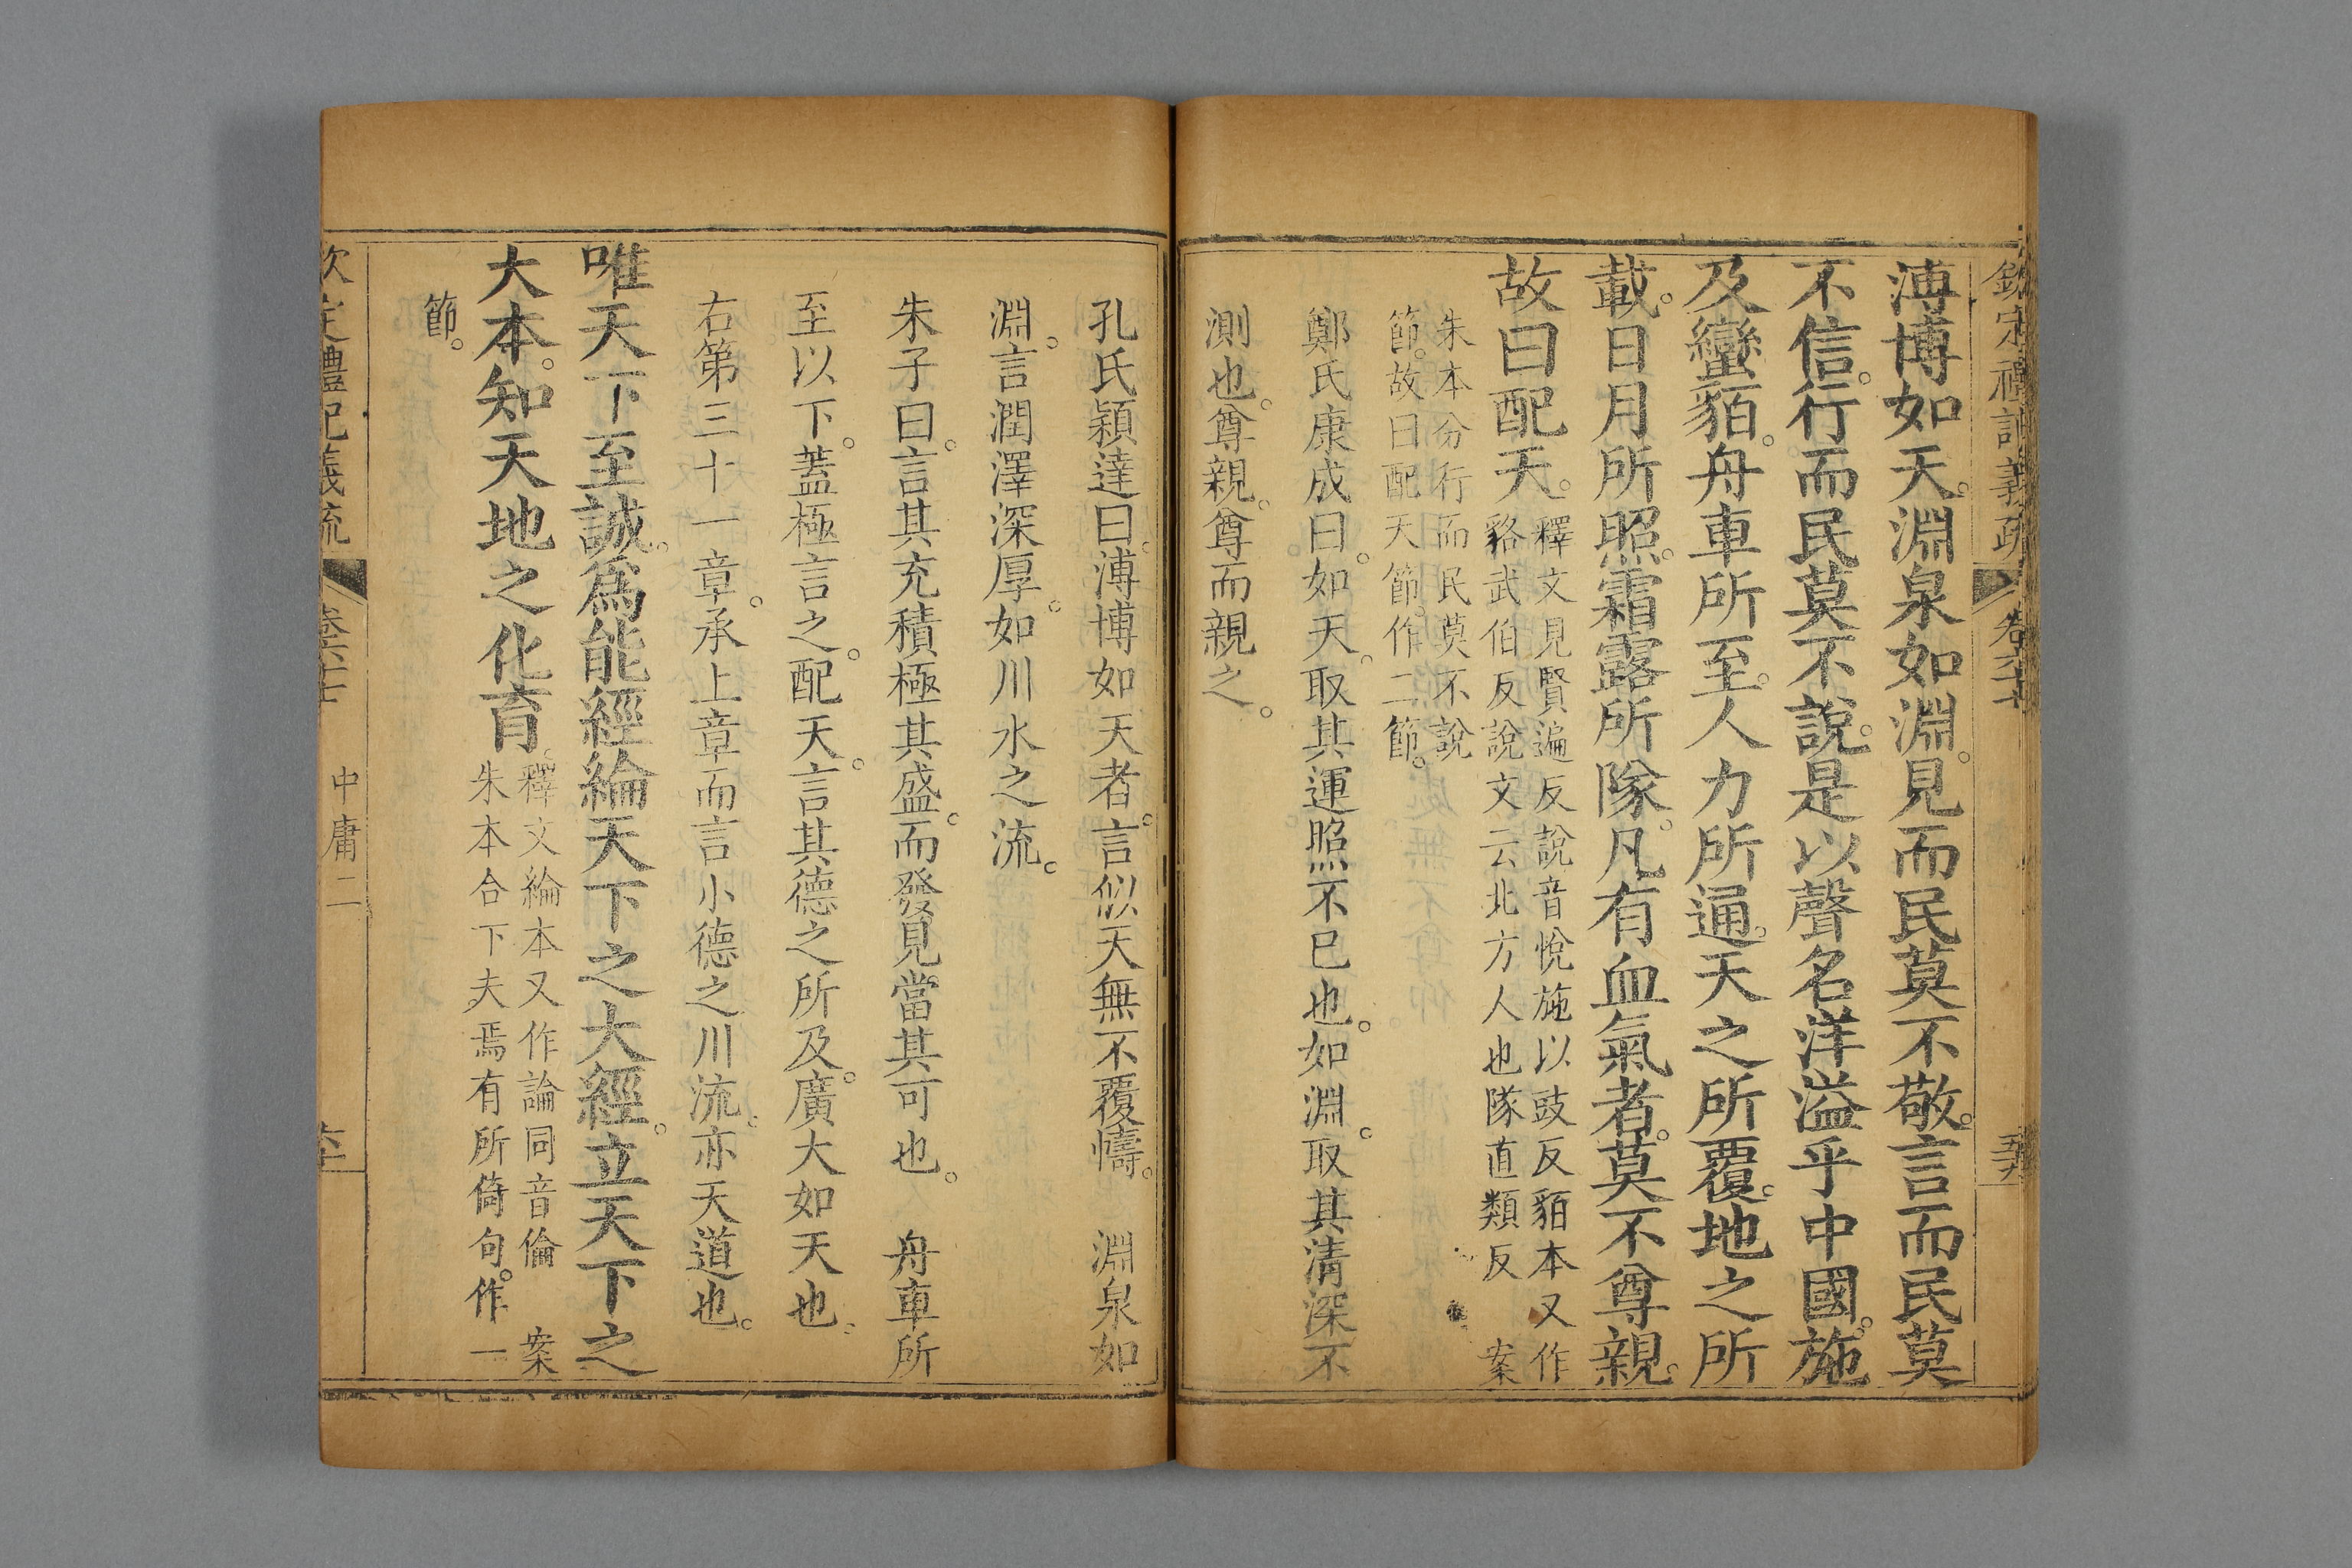 欽定禮記義疏 卷六十七 五十九
溥博如天。淵泉如淵。見而民莫不敬。言而民莫
不信。行而民莫不說。是以聲名洋溢乎中國。施
及蠻貊。舟車所至。人力所通。天之所覆。地之所
載。日月所照。霜露所隊。凡有血氣者。莫不尊親。
故曰配天。
釋文見賢遍反說音悅施以豉反貊本又作
貉武伯反說文云北方人也隊直類反 案
朱本分行而民莫不說
節。故曰配天節。作二節。
鄭氏康成曰。如天。取其運照不已也。如淵。取其淸深不
測也。尊親。尊而親之。
孔氏穎達曰。溥博如天者。言似天無不覆幬。 淵泉如
淵。言潤澤深厚。如川水之流。
朱子曰。言其充積極其盛。而發見當其可也。 舟車所
至以下。蓋極言之。配天。言其德之所及。廣大如天也。
右第三十一章。承上章而言小德之川流。亦天道也。
唯天下至誠。爲能經綸天下之大經。立天下之
大本。知天地之化育。
釋文綸本又作論同音倫 案
朱本合下夫焉有所倚句。作一
節。
欽定禮記義疏 卷六十七 中庸二